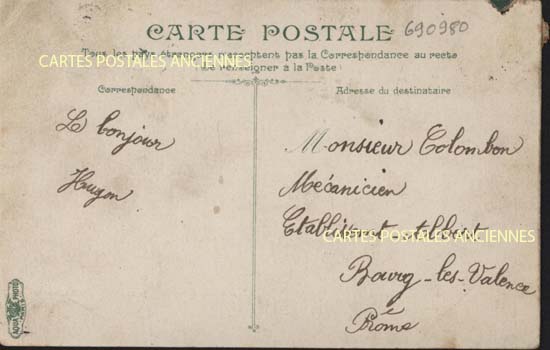 CARTE POSTALE
690980
Tous les pays étrangers n'acceptent pas la Correspondance au recto
Se renseigner à la Poste
CARTES POSTALES ANCIENNES
Correspondance
Le bonjour
Hugon
Adresse du destinataire
Monsieur Colombon
Mécanicien
CARTES POSTALES ANCIENNES
Bourg-les-Valence
Drôme
AQUA PHOTO